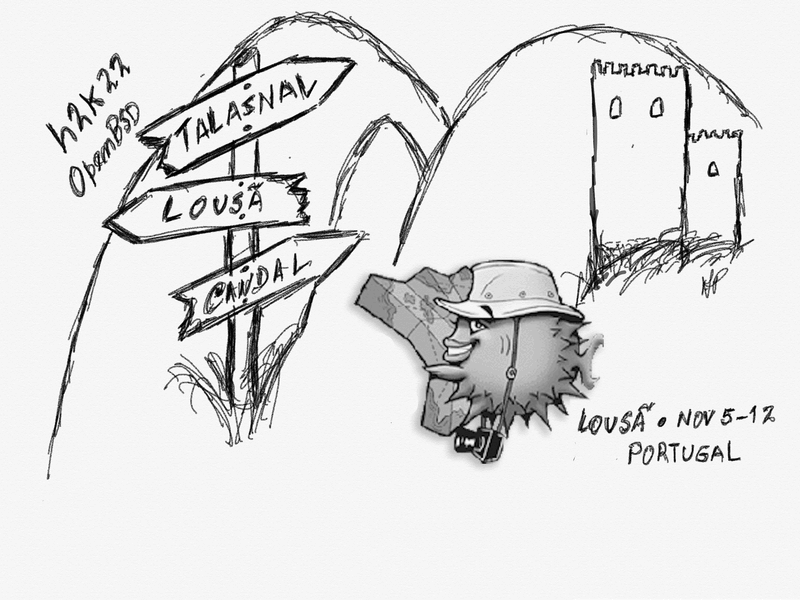 h2k22
OpenBSD
TALASNAL
LOUSÃ
CANDAL
LOUSÃ • NOV 5-12
PORTUGAL